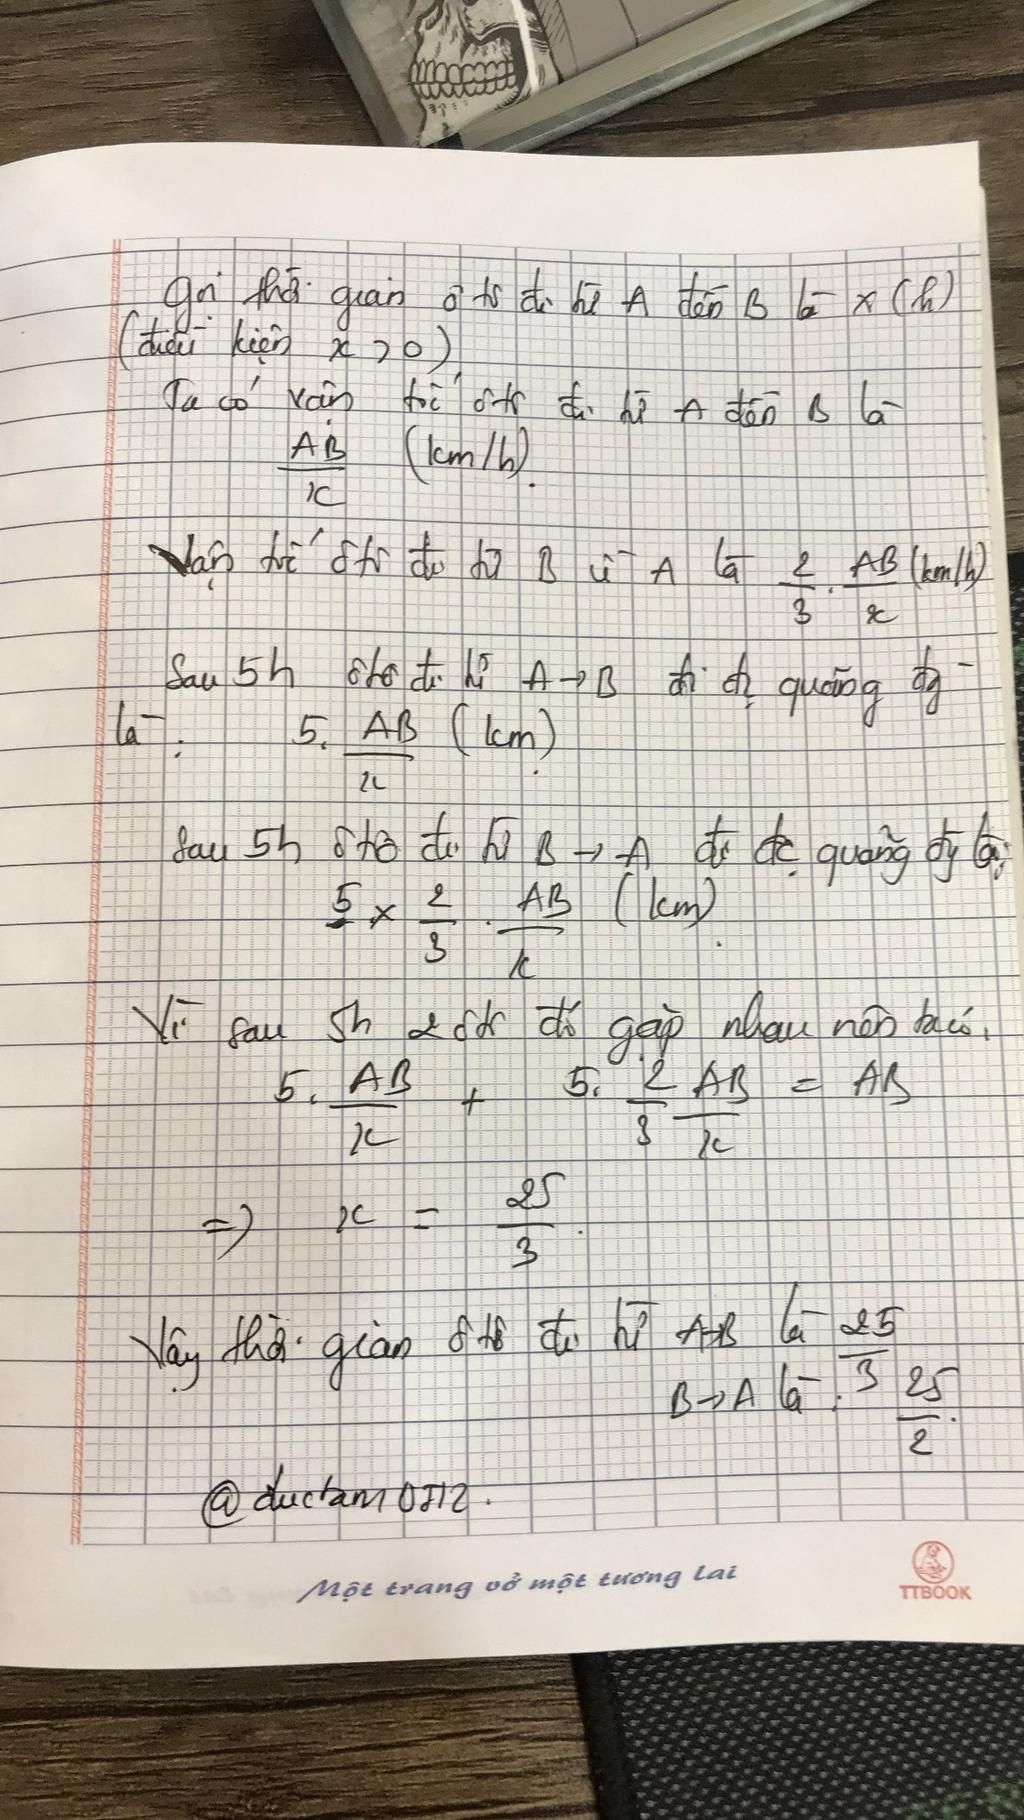 Gọi thời gian ô tô đi từ A đến B là x (h)
(điều kiện x > 0)
Ta có vận tốc ô tô đi từ A đến B là
AB/x (km/h).
Vận tốc ô tô đi từ B về A là 2/3 . AB/x (km/h)
Sau 5h ô tô đi từ A → B đi đc quãng đg
là: 5. AB/x (km).
Sau 5h ô tô đi từ B → A đi đc quãng đg là:
5 x 2/3 . AB/x (km).
Vì sau 5h 2 ô tô đó gặp nhau nên ta có.
5. AB/x + 5. 2/3 AB/x = AB
=> x = 25/3.
Vậy thời gian ô tô đi từ A→B là 25/3
B→A là: 25/2.
@ductam0512.
Một trang vở một tương lai
TTBOOK